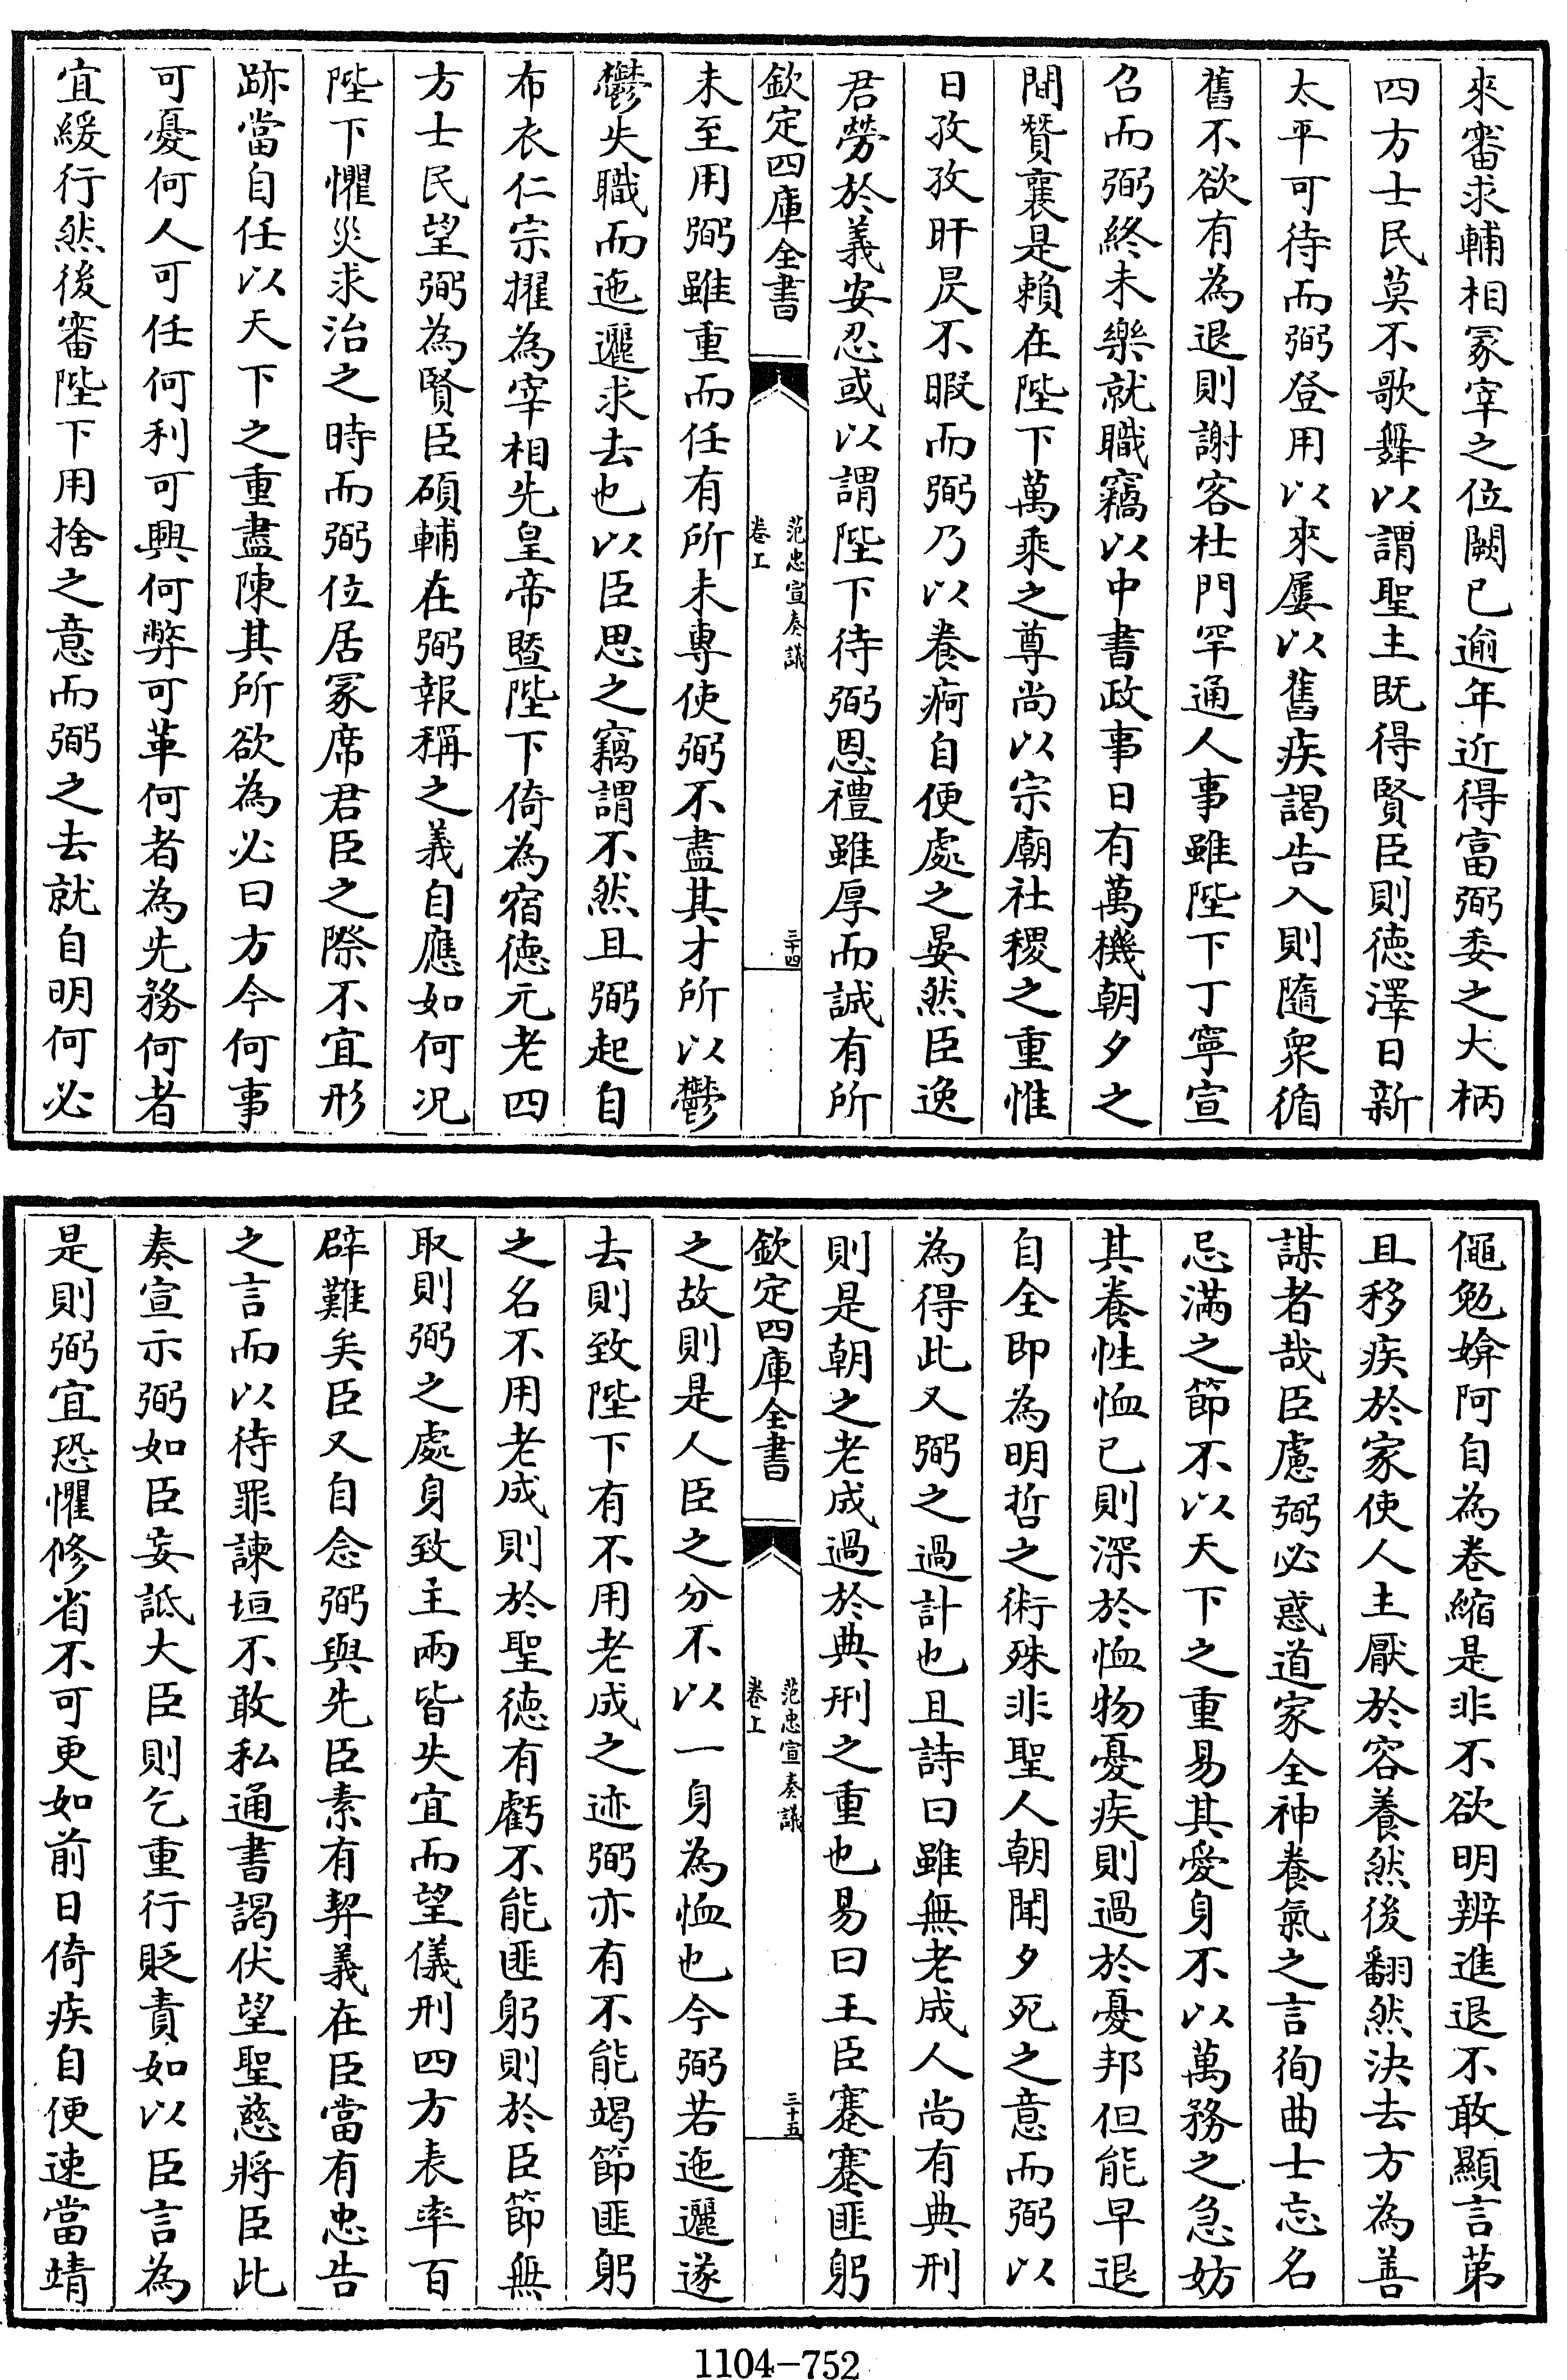 來審求輔相冢宰之位闕已逾年近得富弼委之大柄
四方士民莫不歌舞以謂聖主既得賢臣則德澤日新
太平可待而弼登用以來屢以舊疾謁告入則隨衆循
舊不欲有為退則謝客杜門罕通人事雖陛下丁寧宣
召而弼終未樂就職竊以中書政事日有萬機朝夕之
間贊襄是賴在陛下萬乘之尊尚以宗廟社稷之重惟
日孜孜旰昃不暇而弼乃以養痾自便處之晏然臣逸
君勞於義安忍或以謂陛下待弼恩禮雖厚而誠有所
欽定四庫全書
范忠宣奏議
卷上
三十四
未至用弼雖重而任有所未專使弼不盡其才所以鬱
鬱失職而迤邐求去也以臣思之竊謂不然且弼起自
布衣仁宗擢為宰相先皇帝暨陛下倚為宿德元老四
方士民望弼為賢臣碩輔在弼報稱之義自應如何况
陛下懼災求治之時而弼位居冢席君臣之際不宜形
跡當自任以天下之重盡陳其所欲為必曰方今何事
可憂何人可任何利可興何弊可革何者為先務何者
宜緩行然後審陛下用捨之意而弼之去就自明何必
僶勉媕阿自為卷縮是非不欲明辨進退不敢顯言第
且移疾於家使人主厭於容養然後翻然決去方為善
謀者哉臣慮弼必惑道家全神養氣之言徇曲士忘名
忌滿之節不以天下之重易其愛身不以萬務之急妨
其養性恤已則深於恤物憂疾則過於憂邦但能早退
自全即為明哲之術殊非聖人朝聞夕死之意而弼以
為得此又弼之過計也且詩曰雖無老成人尚有典刑
則是朝之老成過於典刑之重也易曰王臣蹇蹇匪躬
欽定四庫全書
范忠宣奏議
卷上
三十五
之故則是人臣之分不以一身為恤也今弼若迤邐遂
去則致陛下有不用老成之迹弼亦有不能竭節匪躬
之名不用老成則於聖德有虧不能匪躬則於臣節無
取則弼之處身致主兩皆失宜而望儀刑四方表率百
辟難矣臣又自念弼與先臣素有契義在臣當有忠告
之言而以待罪諫垣不敢私通書謁伏望聖慈將臣此
奏宣示弼如臣妄詆大臣則乞重行貶責如以臣言為
是則弼宜恐懼修省不可更如前日倚疾自便速當靖
1104-752